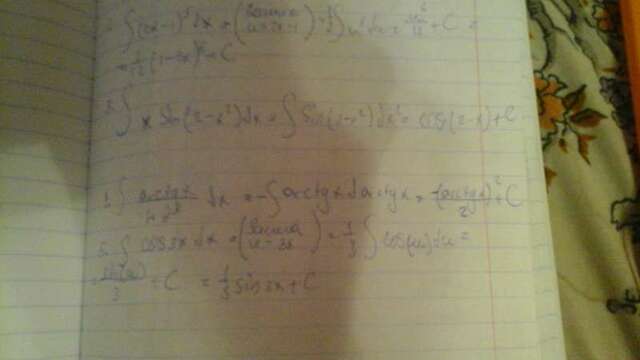 ∫(2x-1)⁵dx = (замена u=2x-1) = ½∫u⁵du = u⁶/12 + C =
= 1/12 (1-2x)⁶ + C
∫ x sin(2-x²)dx = ∫ sin(2-x²) dx² = cos(2-x) + C
∫ arctgx/1+x² dx = -∫arctgx darctgx = (arctgx)²/2 + C
5. ∫ cos3x dx = (замена u=3x) = 1/3 ∫ cos(u)du =
= sin(u)/3 + C = 1/3 sin3x + C